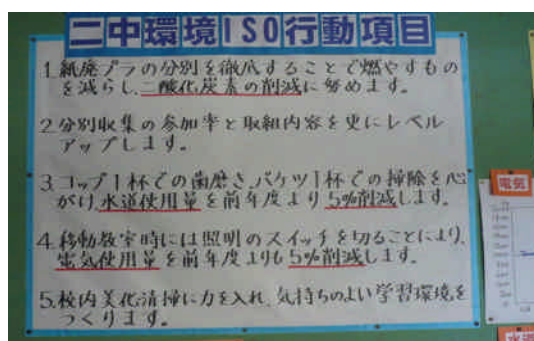 二中環境ISO行動項目
1.紙廃プラの分別を徹底することで燃やすもの
を減らし、二酸化炭素の削減に努めます。
2.分別収集の参加率と取組内容を更にレベル
アップします。
3.コップ1杯での歯磨き、バケツ1杯での掃除を心
がけ、水道使用量を前年度より5%削減します。
4.移動教室時には照明のスイッチを切ることにより、
電気使用量を前年度よりも5%削減します。
5.校内美化清掃に力を入れ、気持ちのよい学習環境を
つくります。
電気
水道